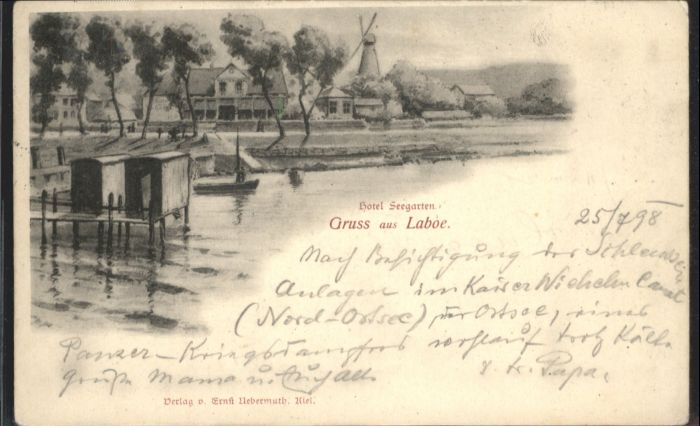 Hotel Seegarten.
Gruss aus Laboe.
25/7 98
Nach Besichtigung der Schleusen
Anlagen im Kaiser Wilhelm Canal
(Nord-Ostsee) Ostsee, eines
Panzer-Kriegsdampfers trotz Kälte
grüße Mama u.
Papa.
Verlag v. Ernst Uebermuth, Kiel.